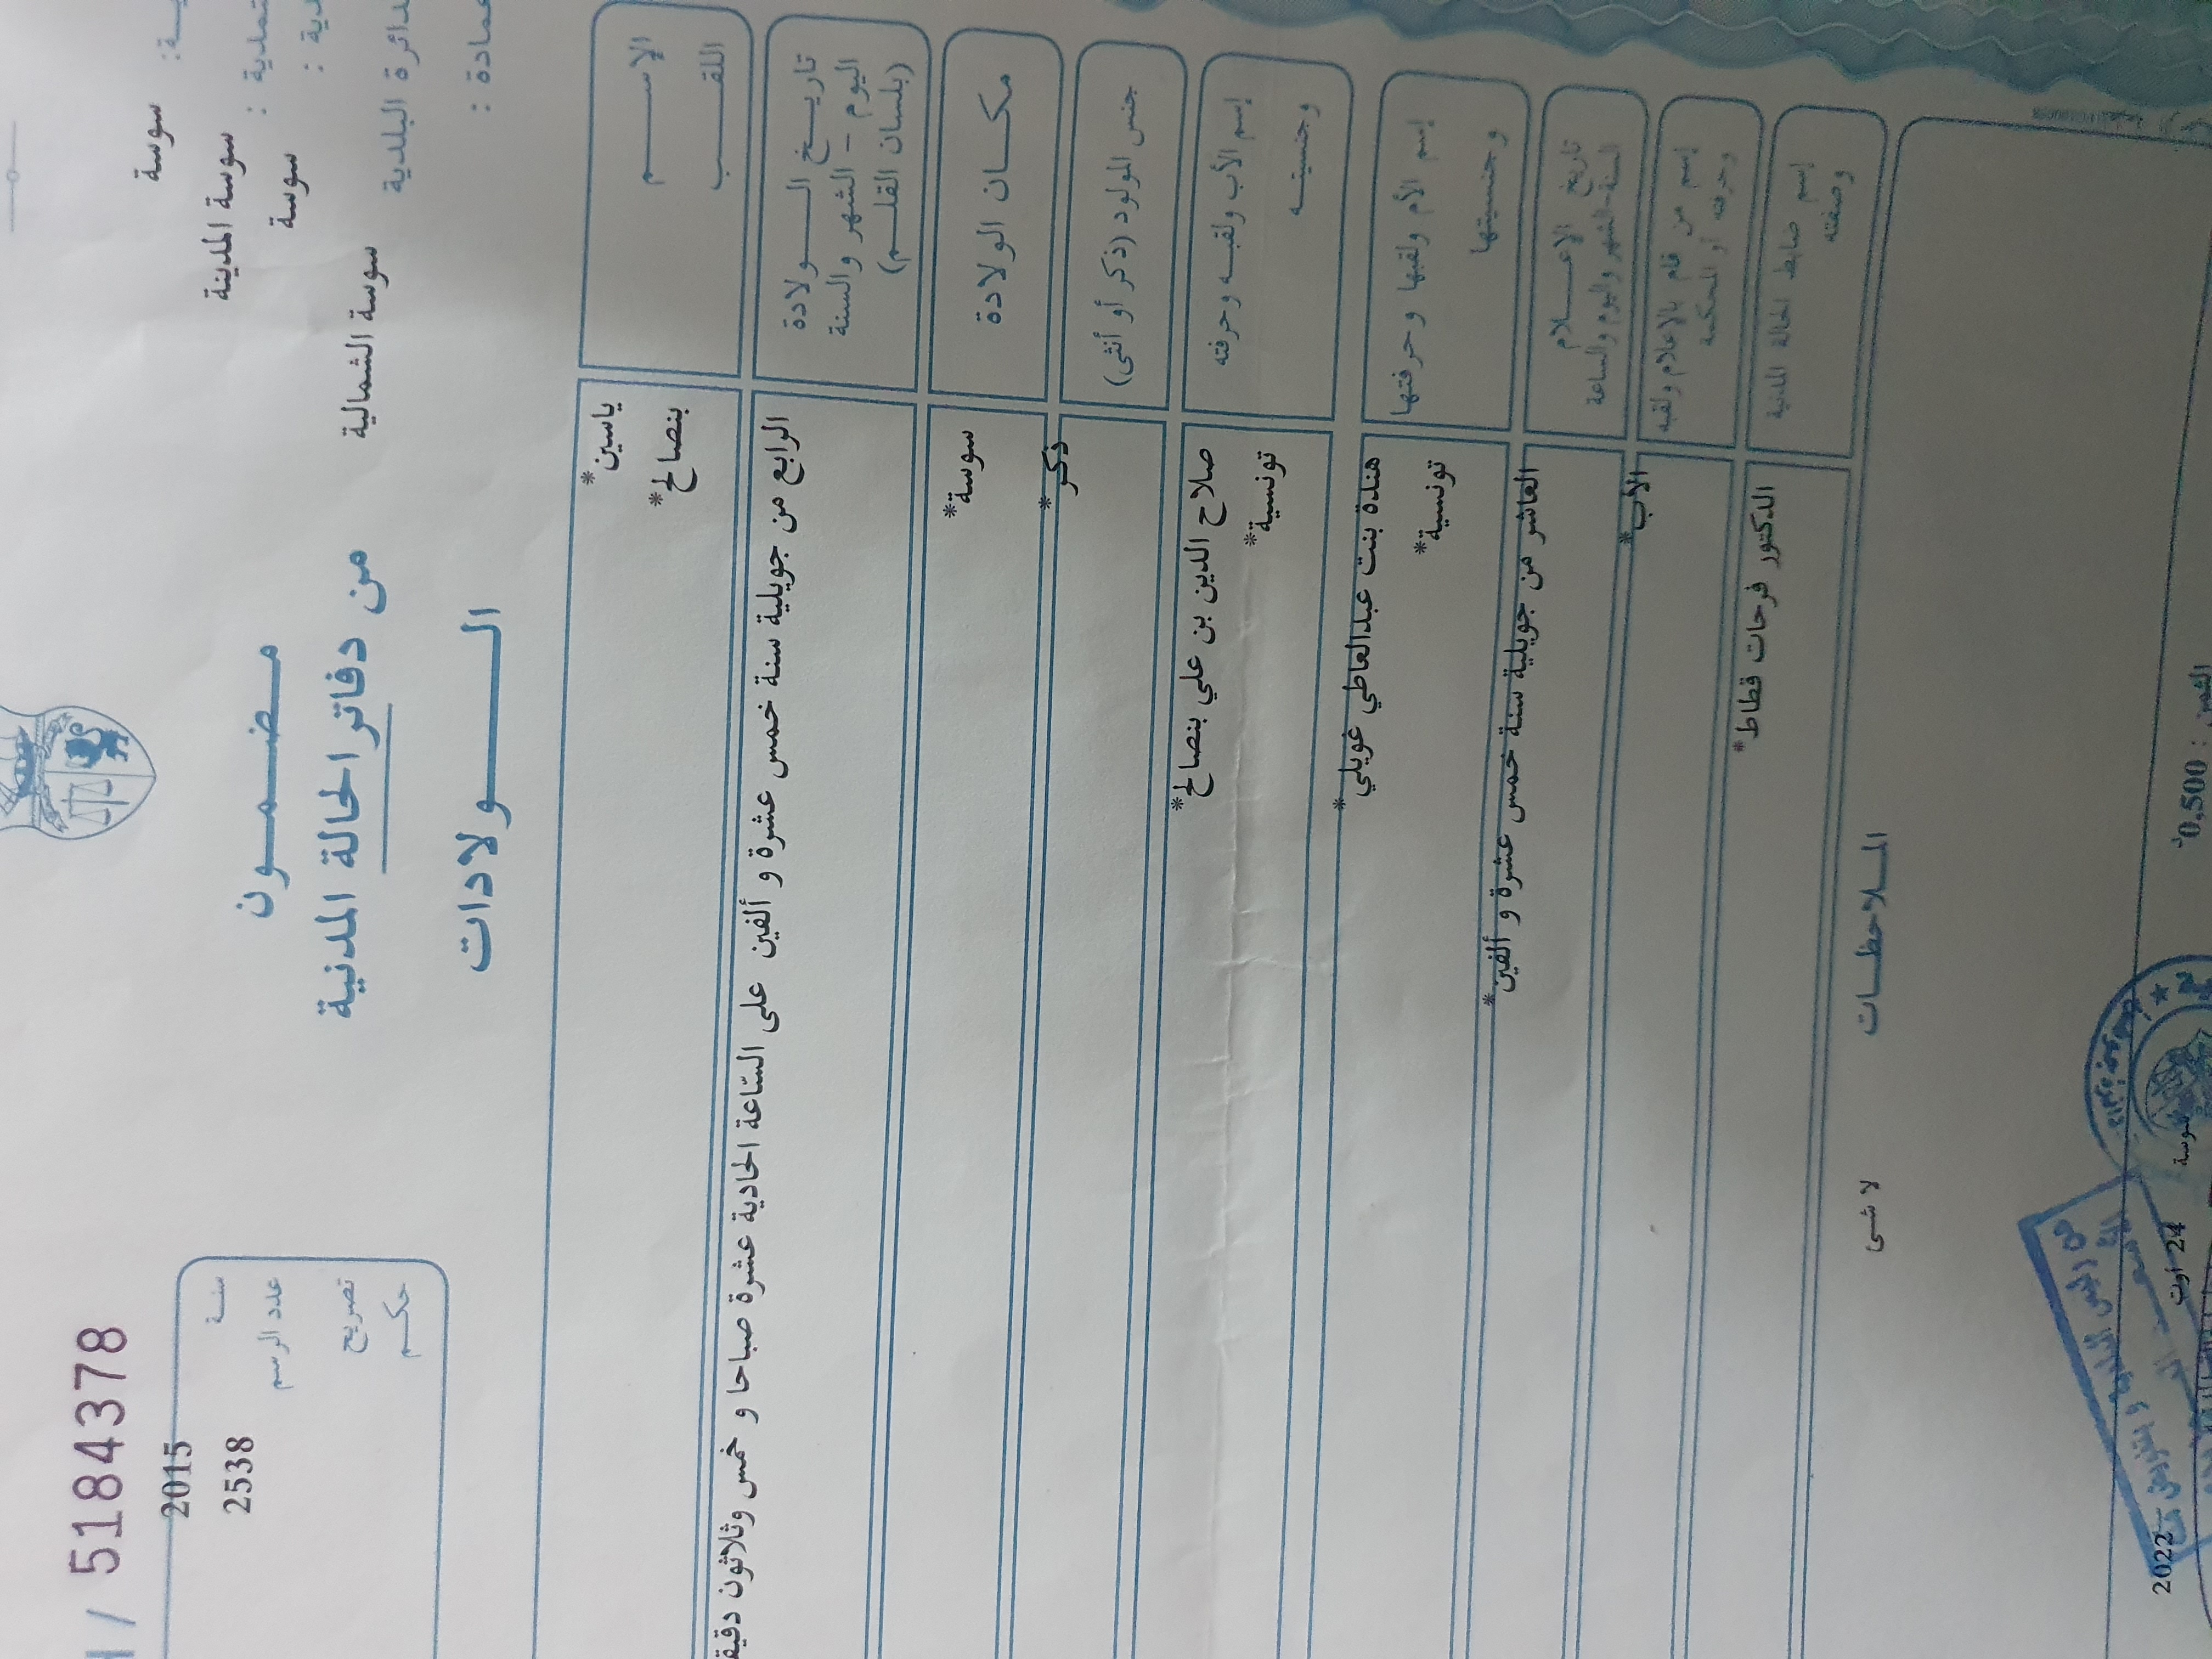 ا / 5184378
سنة 2015
عدد الرسم 2538
تصريح
حكم
سوسة
سوسة المدينة
سوسة
دائرة البلدية سوسة الشمالية
مضمون
من دفاتر الحالة المدنية
الولادات
الاسم ياسين*
اللقب بنصالح*
تاريخ الولادة
اليوم - الشهر والسنة
(بلسان القلم)
الرابع من جويلية سنة خمس عشرة و ألفين على الساعة الحادية عشرة صباحا و خمس وثلاثون دقيقة
مكان الولادة سوسة*
جنس المولود (ذكر أو أنثى) ذكر*
إسم الأب ولقبه وحرفته صلاح الدين بن علي بنصالح*
وجنسيته تونسية*
إسم الأم ولقبها وحرفتها هندة بنت عبدالعاطي غويلي*
وجنسيتها تونسية*
تاريخ الإعلام
السنة-الشهر واليوم والساعة
العاشر من جويلية سنة خمس عشرة و ألفين*
إسم من قام بالإعلام ولقبه
وحرفته أو المحكمة
الأب*
إسم ضابط الحالة المدنية
وصفته
الدكتور فرحات قطاط*
الملاحظات
لا شى
سوسة 24 أوت 2022
الثمن : 0,500د